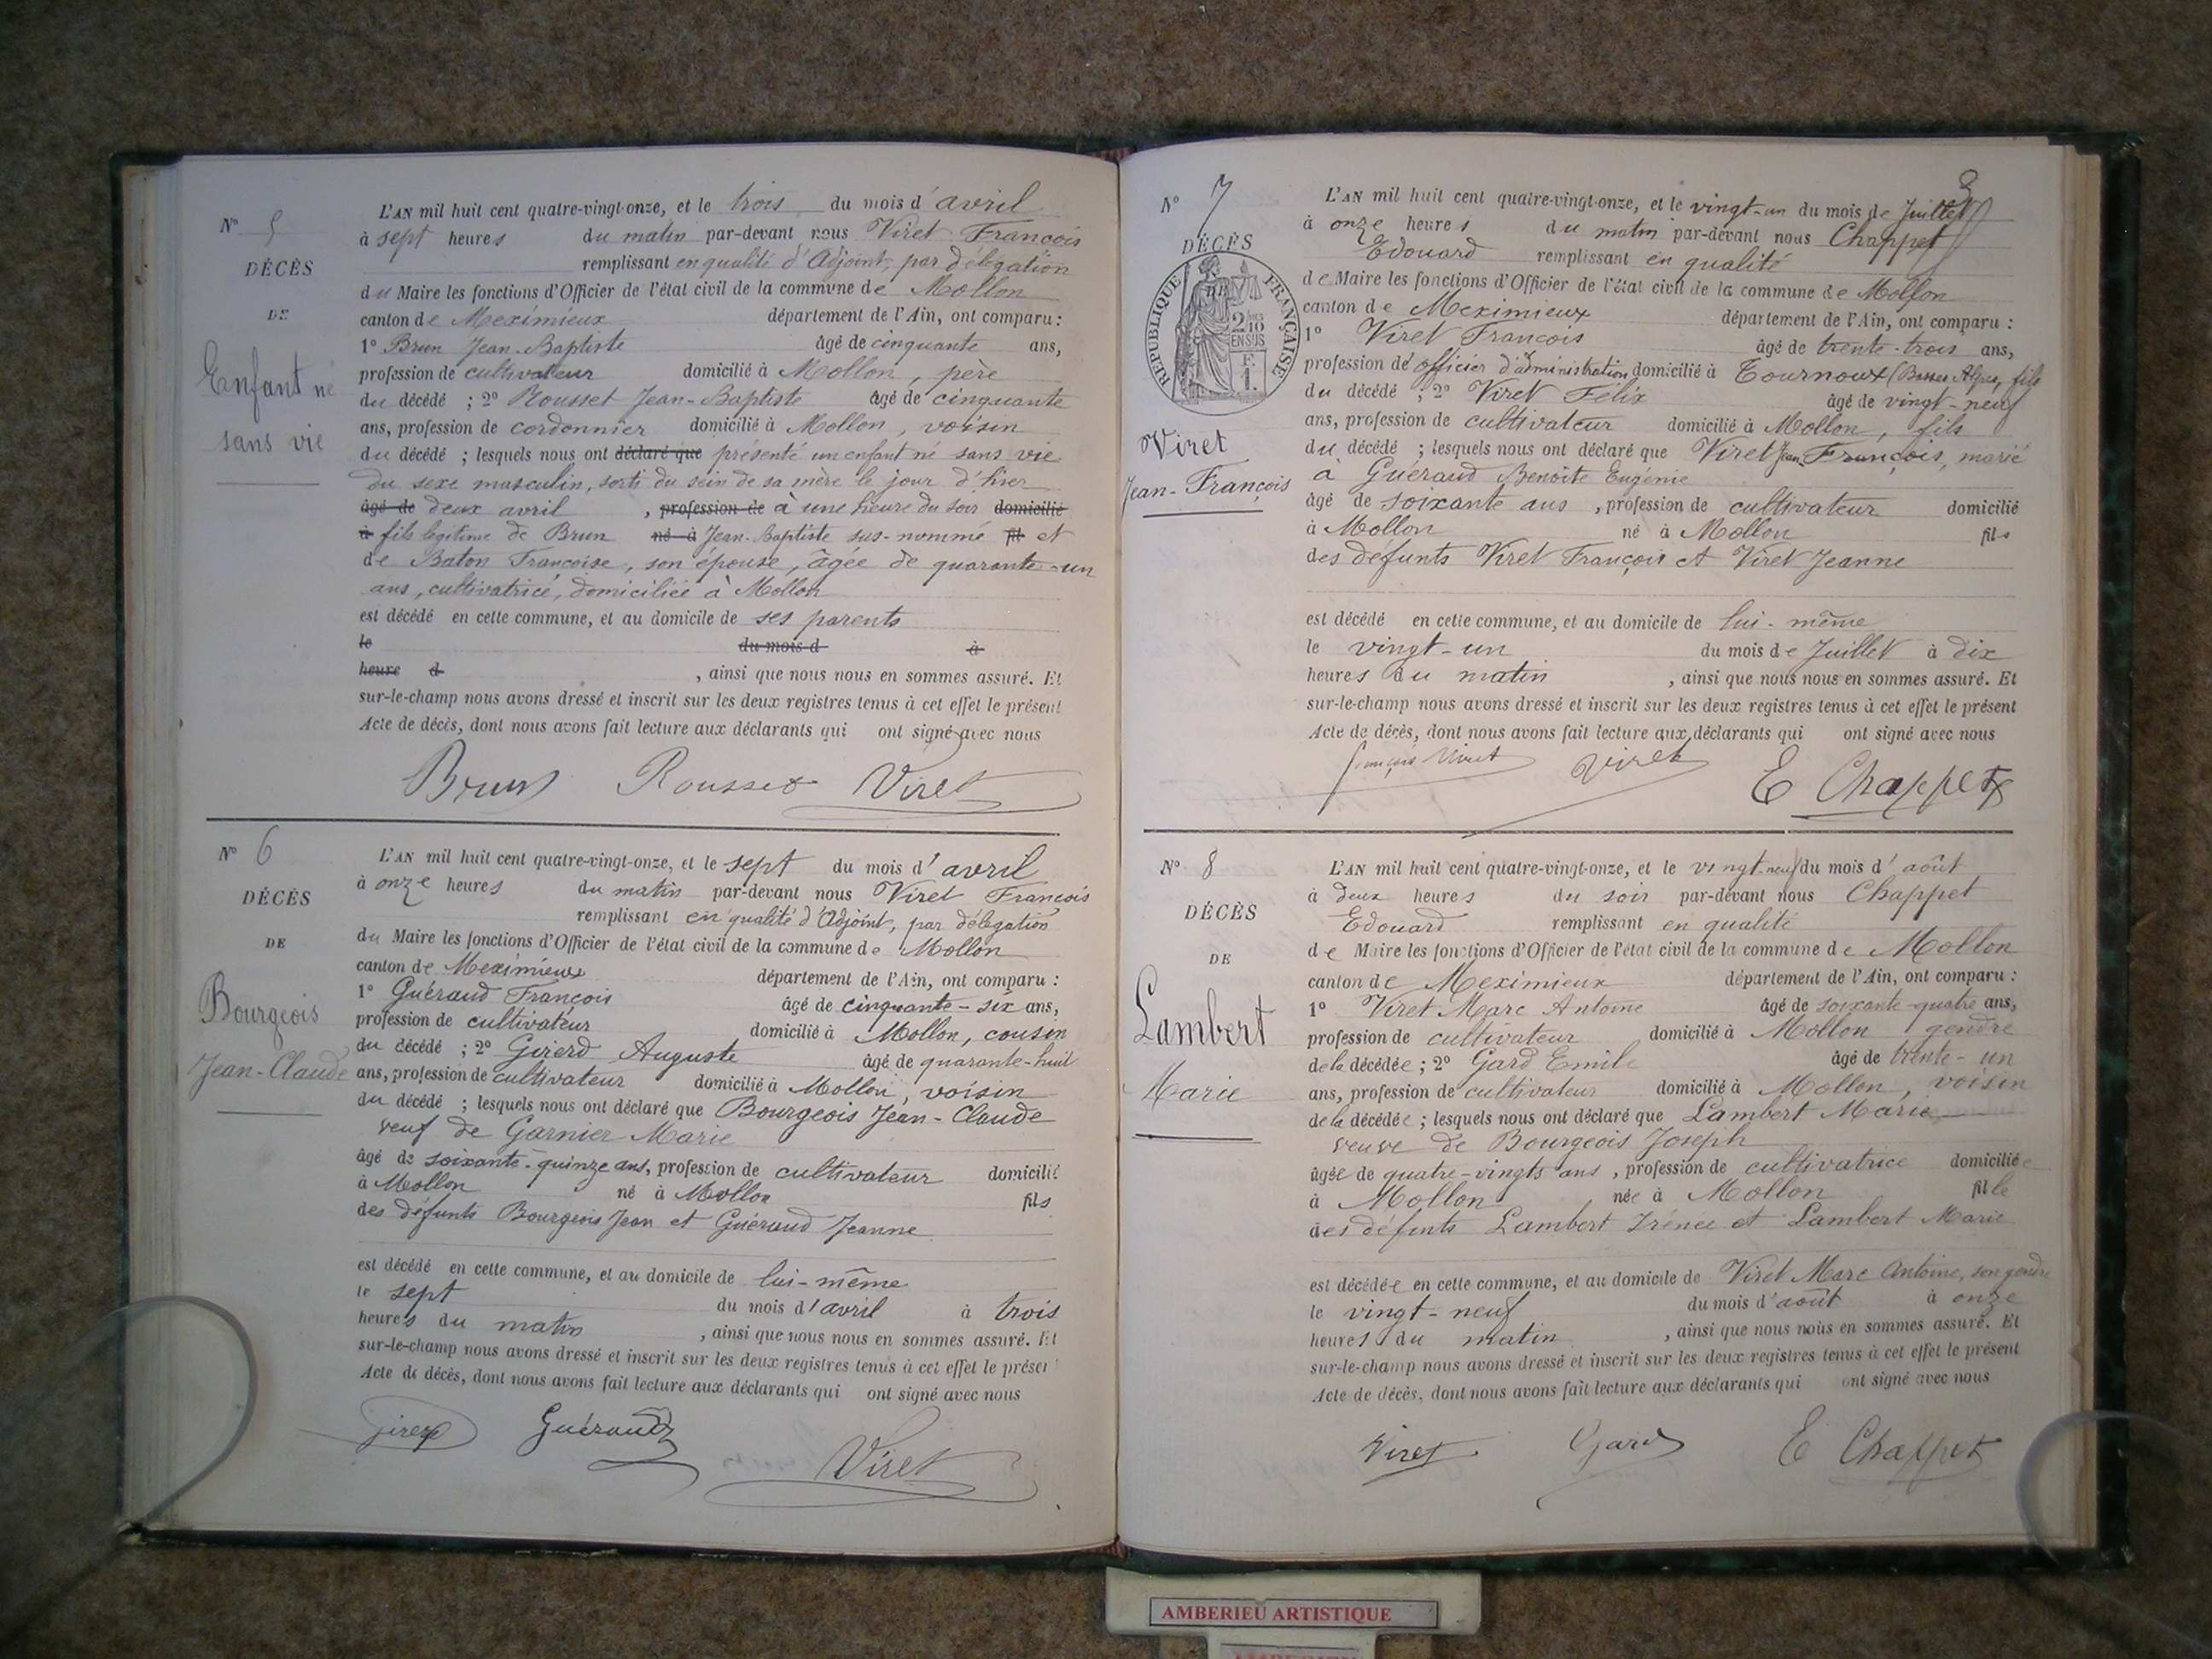 N° 5
DÉCÈS
DE
Enfant né
sans vie
L'AN mil huit cent quatre-vingt-onze, et le trois du mois d'avril
à sept heures du matin par-devant nous Viret François
remplissant en qualité d'Adjoint, par délégation
du Maire les fonctions d'Officier de l'état civil de la commune de Mollon
canton de Meximieux département de l'Ain, ont comparu :
1° Brun Jean-Baptiste âgé de cinquante ans,
profession de cultivateur domicilié à Mollon, père
du décédé ; 2° Rousset Jean-Baptiste âgé de cinquante
ans, profession de cordonnier domicilié à Mollon, voisin
du décédé ; lesquels nous ont déclaré que présenté un enfant né sans vie
du sexe masculin, sorti du sein de sa mère le jour d'hier
âgé de deux avril , profession de à une heure du soir domicilié
à fils légitime de Brun né à Jean-Baptiste sus-nommé fil et
de Baton Françoise, son épouse, âgée de quarante-un
ans, cultivatrice, domiciliée à Mollon
est décédé en cette commune, et au domicile de ses parents
le du mois d à
heure d , ainsi que nous nous en sommes assuré. Et
sur-le-champ nous avons dressé et inscrit sur les deux registres tenus à cet effet le présent
Acte de décès, dont nous avons fait lecture aux déclarants qui ont signé avec nous
Brun Rousset Viret
N° 6
DÉCÈS
DE
Bourgeois
Jean-Claude
L'AN mil huit cent quatre-vingt-onze, et le sept du mois d'avril
à onze heures du matin par-devant nous Viret François
remplissant en qualité d'Adjoint, par délégation
du Maire les fonctions d'Officier de l'état civil de la commune de Mollon
canton de Meximieux département de l'Ain, ont comparu :
1° Guéraud François âgé de cinquante-six ans,
profession de cultivateur domicilié à Mollon, cousin
du décédé ; 2° Girerd Auguste âgé de quarante-huit
ans, profession de cultivateur domicilié à Mollon, voisin
du décédé ; lesquels nous ont déclaré que Bourgeois Jean-Claude
veuf de Garnier Marie
âgé de soixante-quinze ans, profession de cultivateur domicilié
à Mollon né à Mollon fils
des défunts Bourgeois Jean et Guéraud Jeanne
est décédé en cette commune, et au domicile de lui-même
le sept du mois d'avril à trois
heures du matin , ainsi que nous nous en sommes assuré. Et
sur-le-champ nous avons dressé et inscrit sur les deux registres tenus à cet effet le présent
Acte de décès, dont nous avons fait lecture aux déclarants qui ont signé avec nous
Girerd Guéraud
Viret
3
N° 7
DÉCÈS
RÉPUBLIQUE FRANÇAISE
2/10 EN SUS
F.
1.
Viret
Jean-François
L'AN mil huit cent quatre-vingt-onze, et le vingt-un du mois de Juillet
à onze heures du matin par-devant nous Chappet
Edouard remplissant en qualité
de Maire les fonctions d'Officier de l'état civil de la commune de Mollon
canton de Meximieux département de l'Ain, ont comparu :
1° Viret François âgé de trente-trois ans,
profession de officier d'administration domicilié à Tournoux (Basses Alpes, fils
du décédé ; 2° Viret Félix âgé de vingt-neuf
ans, profession de cultivateur domicilié à Mollon, fils
du décédé ; lesquels nous ont déclaré que Viret Jean-François, marié
à Guéraud Benoîte Eugénie
âgé de soixante ans , profession de cultivateur domicilié
à Mollon né à Mollon fils
des défunts Viret François et Viret Jeanne
est décédé en cette commune, et au domicile de lui-même
le vingt-un du mois de Juillet à dix
heures du matin , ainsi que nous nous en sommes assuré. Et
sur-le-champ nous avons dressé et inscrit sur les deux registres tenus à cet effet le présent
Acte de décès, dont nous avons fait lecture aux déclarants qui ont signé avec nous
François Viret Viret E Chappet
N° 8
DÉCÈS
DE
Lambert
Marie
L'AN mil huit cent quatre-vingt-onze, et le vingt-neuf du mois d'août
à deux heures du soir par-devant nous Chappet
Edouard remplissant en qualité
de Maire les fonctions d'Officier de l'état civil de la commune de Mollon
canton de Meximieux département de l'Ain, ont comparu :
1° Viret Marc Antoine âgé de soixante-quatre ans,
profession de cultivateur domicilié à Mollon gendre
de la décédée ; 2° Gard Emile âgé de trente-un
ans, profession de cultivateur domicilié à Mollon, voisin
de la décédée ; lesquels nous ont déclaré que Lambert Marie,
veuve de Bourgeois Joseph
âgée de quatre-vingts ans , profession de cultivatrice domiciliée
à Mollon née à Mollon fille
des défunts Lambert Irénée et Lambert Marie
est décédée en cette commune, et au domicile de Viret Marc Antoine, son gendre
le vingt-neuf du mois d'août à onze
heures du matin , ainsi que nous nous en sommes assuré. Et
sur-le-champ nous avons dressé et inscrit sur les deux registres tenus à cet effet le présent
Acte de décès, dont nous avons fait lecture aux déclarants qui ont signé avec nous
Viret Gard E Chappet
AMBERIEU ARTISTIQUE
AMBERIEU